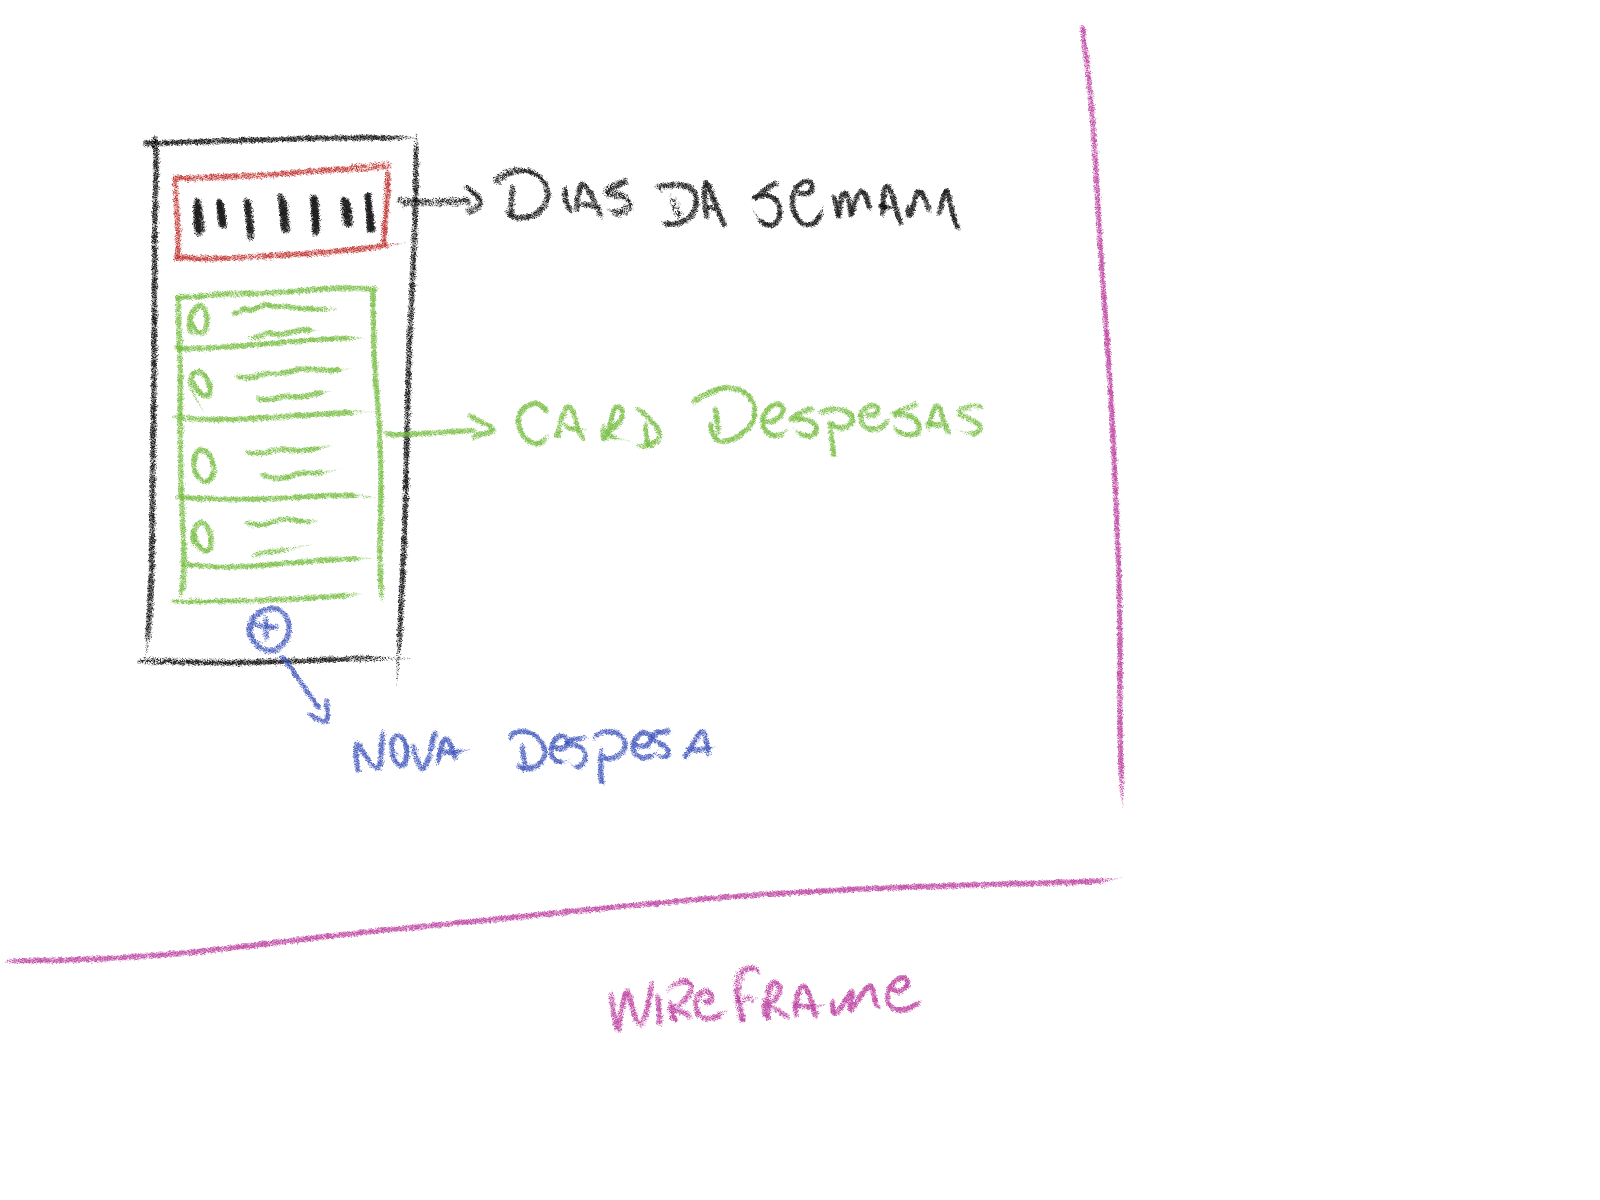 DIAS DA SEMANA
CARD DESPESAS
+
NOVA DESPESA
WIREFRAME